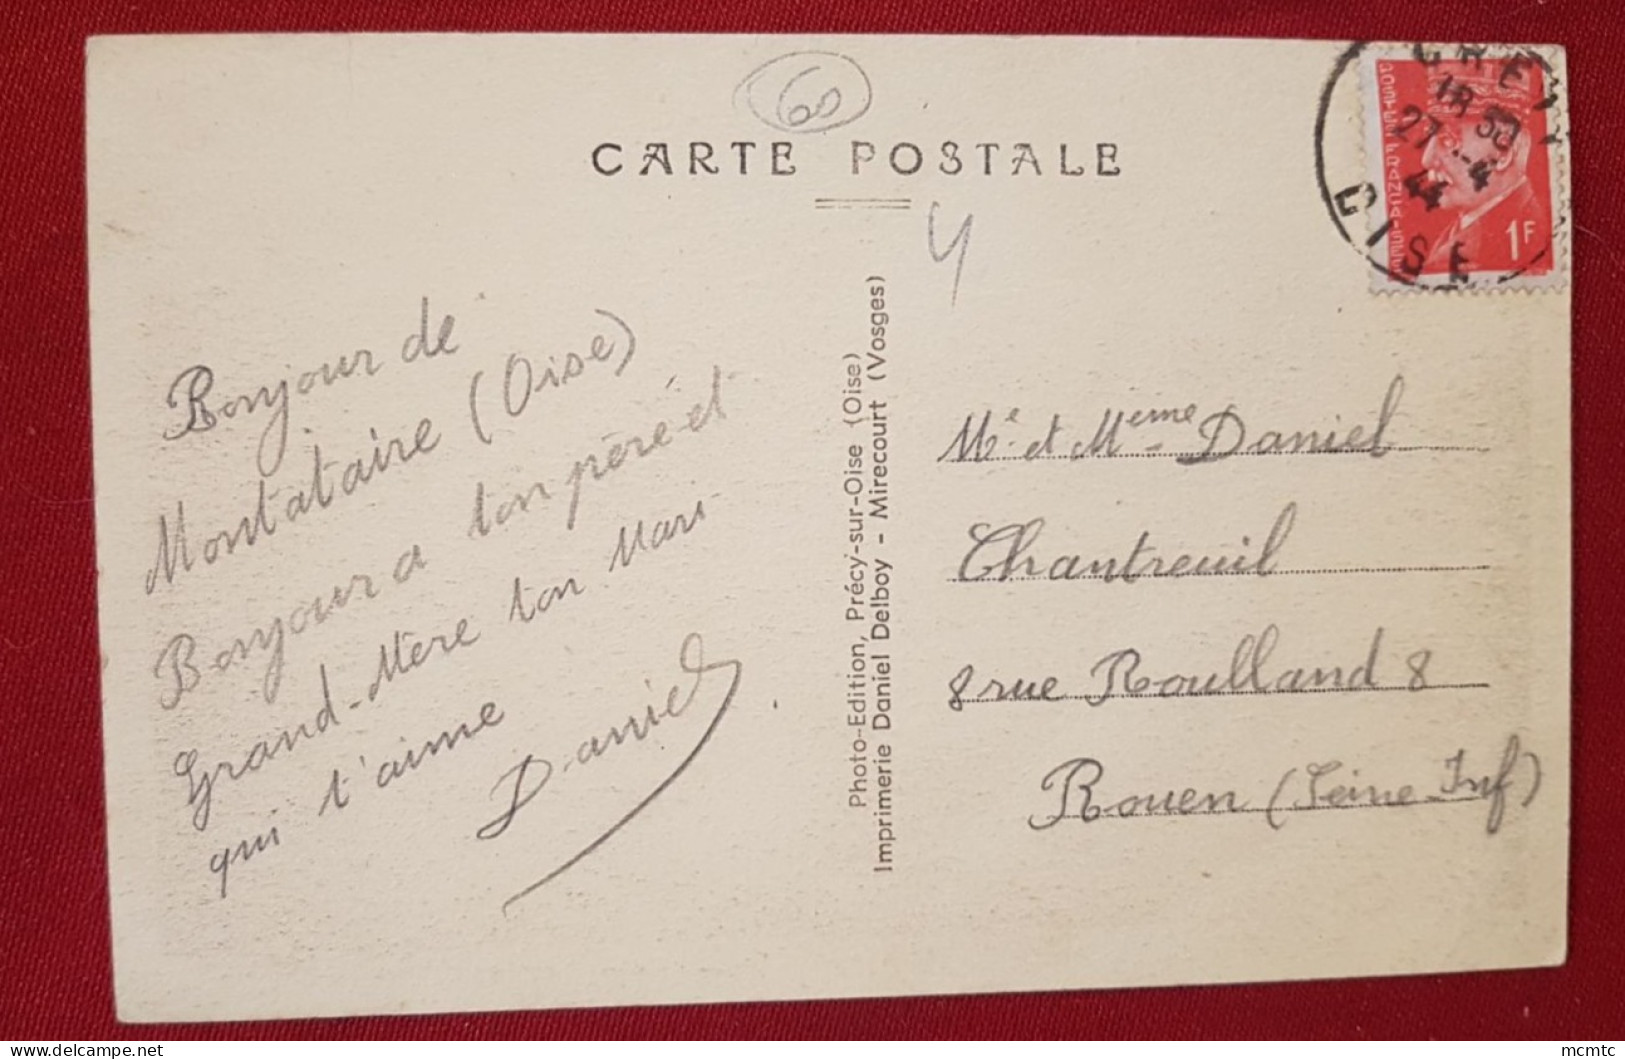 60
CARTE POSTALE
CREIL
18 30
27 -4
44
OISE
POSTES FRANÇAISES
1F
Bonjour de
Montataire (Oise)
Bonjour a ton père et
Grand-Mère ton Mari
qui t'aime
Daniel
Photo-Edition, Précy-sur-Oise (Oise)
Imprimerie Daniel Delboy - Mirecourt (Vosges)
Mr et Meme Daniel
Chantreuil
8 rue Roulland 8
Rouen (Seine-Inf)
mcmtc